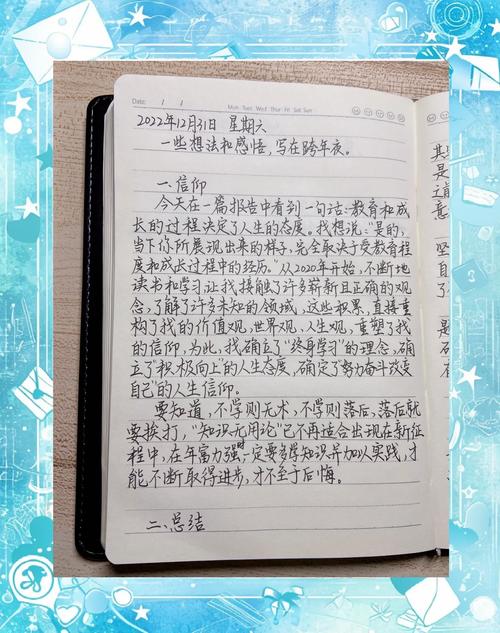 Date: / /
Mon Tue Wed Thu Fri Sat Sun
2022年12月31日 星期六
一些想法和感悟,写在跨年夜。
一.信仰
今天在一篇报告中看到一句话:教育和成
长的过程决定了人生的态度。我想说:"是的,
当下你所展现出来的样子,完全取决于受教育程
度和成长过程中的经历。"从2020年开始,不断地
读书和学习让我接触了许多崭新且正确的观
念,了解了许多未知的领域,这些积累,直接重
构了我的价值观,世界观,人生观,重塑了我
的信仰,为此,我确立了"终身学习"的理念,确
立了"积极向上"的人生态度,确定了努力奋斗改变
自己"的人生信仰。
要知道,不学则无术,不学则落后,落后就
要挨打,"知识无用论"已不再适合出现在新征
程中,在年富力强时一定要多学知识并加以实践,才
能不断取得进步,才不至于后悔。
二.总结
其
是
立
意
坚
自
了
是
石